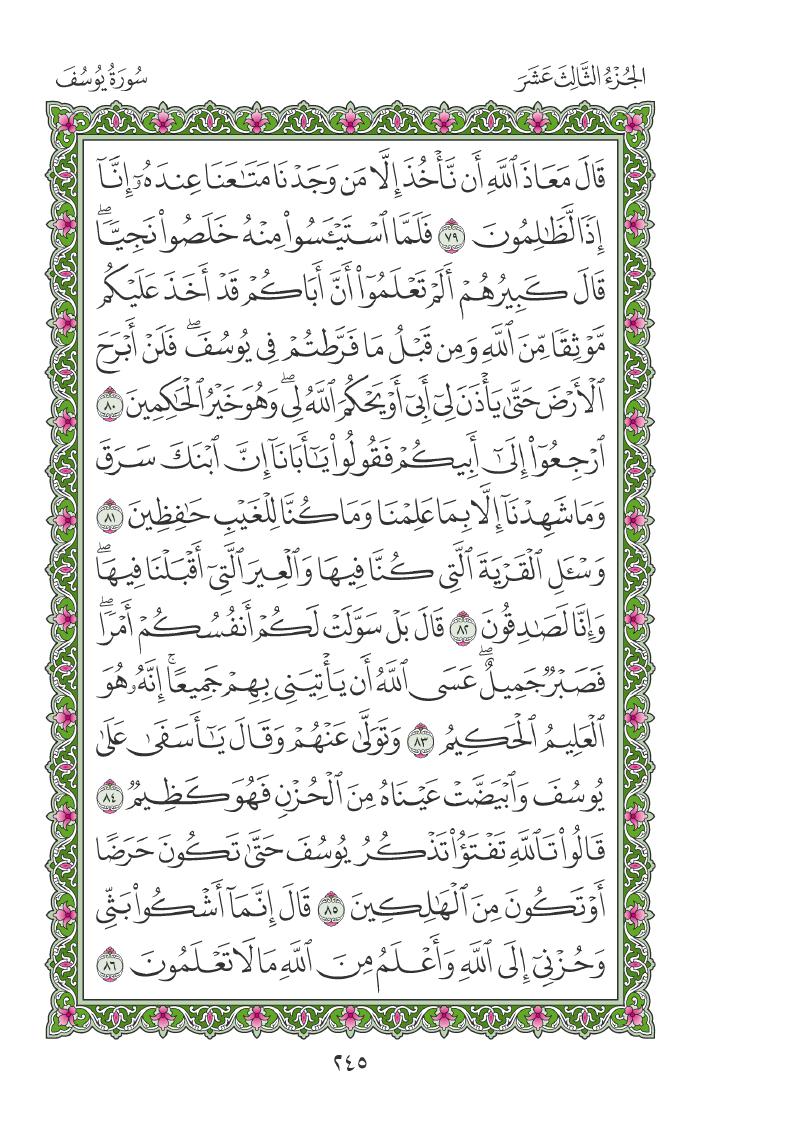 الجُزْءُ الثَّالِثَ عَشَرَ
سُورَةُ يُوسُفَ
قَالَ مَعَاذَ ٱللَّهِ أَن نَّأۡخُذَ إِلَّا مَن وَجَدۡنَا مَتَٰعَنَا عِندَهُۥٓ إِنَّآ
إِذٗا لَّظَٰلِمُونَ ٧٩ فَلَمَّا ٱسۡتَيۡـَٔسُواْ مِنۡهُ خَلَصُواْ نَجِيّٗاۖ
قَالَ كَبِيرُهُمۡ أَلَمۡ تَعۡلَمُوٓاْ أَنَّ أَبَاكُمۡ قَدۡ أَخَذَ عَلَيۡكُم
مَّوۡثِقٗا مِّنَ ٱللَّهِ وَمِن قَبۡلُ مَا فَرَّطتُمۡ فِي يُوسُفَۖ فَلَنۡ أَبۡرَحَ
ٱلۡأَرۡضَ حَتَّىٰ يَأۡذَنَ لِيٓ أَبِيٓ أَوۡ يَحۡكُمَ ٱللَّهُ لِيۖ وَهُوَ خَيۡرُ ٱلۡحَٰكِمِينَ ٨٠
ٱرۡجِعُوٓاْ إِلَىٰٓ أَبِيكُمۡ فَقُولُواْ يَٰٓأَبَانَآ إِنَّ ٱبۡنَكَ سَرَقَ
وَمَا شَهِدۡنَآ إِلَّا بِمَا عَلِمۡنَا وَمَا كُنَّا لِلۡغَيۡبِ حَٰفِظِينَ ٨١
وَسۡـَٔلِ ٱلۡقَرۡيَةَ ٱلَّتِي كُنَّا فِيهَا وَٱلۡعِيرَ ٱلَّتِيٓ أَقۡبَلۡنَا فِيهَاۖ
وَإِنَّا لَصَٰدِقُونَ ٨٢ قَالَ بَلۡ سَوَّلَتۡ لَكُمۡ أَنفُسُكُمۡ أَمۡرٗاۖ
فَصَبۡرٞ جَمِيلٌۖ عَسَى ٱللَّهُ أَن يَأۡتِيَنِي بِهِمۡ جَمِيعًاۚ إِنَّهُۥ هُوَ
ٱلۡعَلِيمُ ٱلۡحَكِيمُ ٨٣ وَتَوَلَّىٰ عَنۡهُمۡ وَقَالَ يَٰٓأَسَفَىٰ عَلَىٰ
يُوسُفَ وَٱبۡيَضَّتۡ عَيۡنَاهُ مِنَ ٱلۡحُزۡنِ فَهُوَ كَظِيمٞ ٨٤
قَالُواْ تَٱللَّهِ تَفۡتَؤُاْ تَذۡكُرُ يُوسُفَ حَتَّىٰ تَكُونَ حَرَضًا
أَوۡ تَكُونَ مِنَ ٱلۡهَٰلِكِينَ ٨٥ قَالَ إِنَّمَآ أَشۡكُواْ بَثِّي
وَحُزۡنِيٓ إِلَى ٱللَّهِ وَأَعۡلَمُ مِنَ ٱللَّهِ مَا لَا تَعۡلَمُونَ ٨٦
٢٤٥